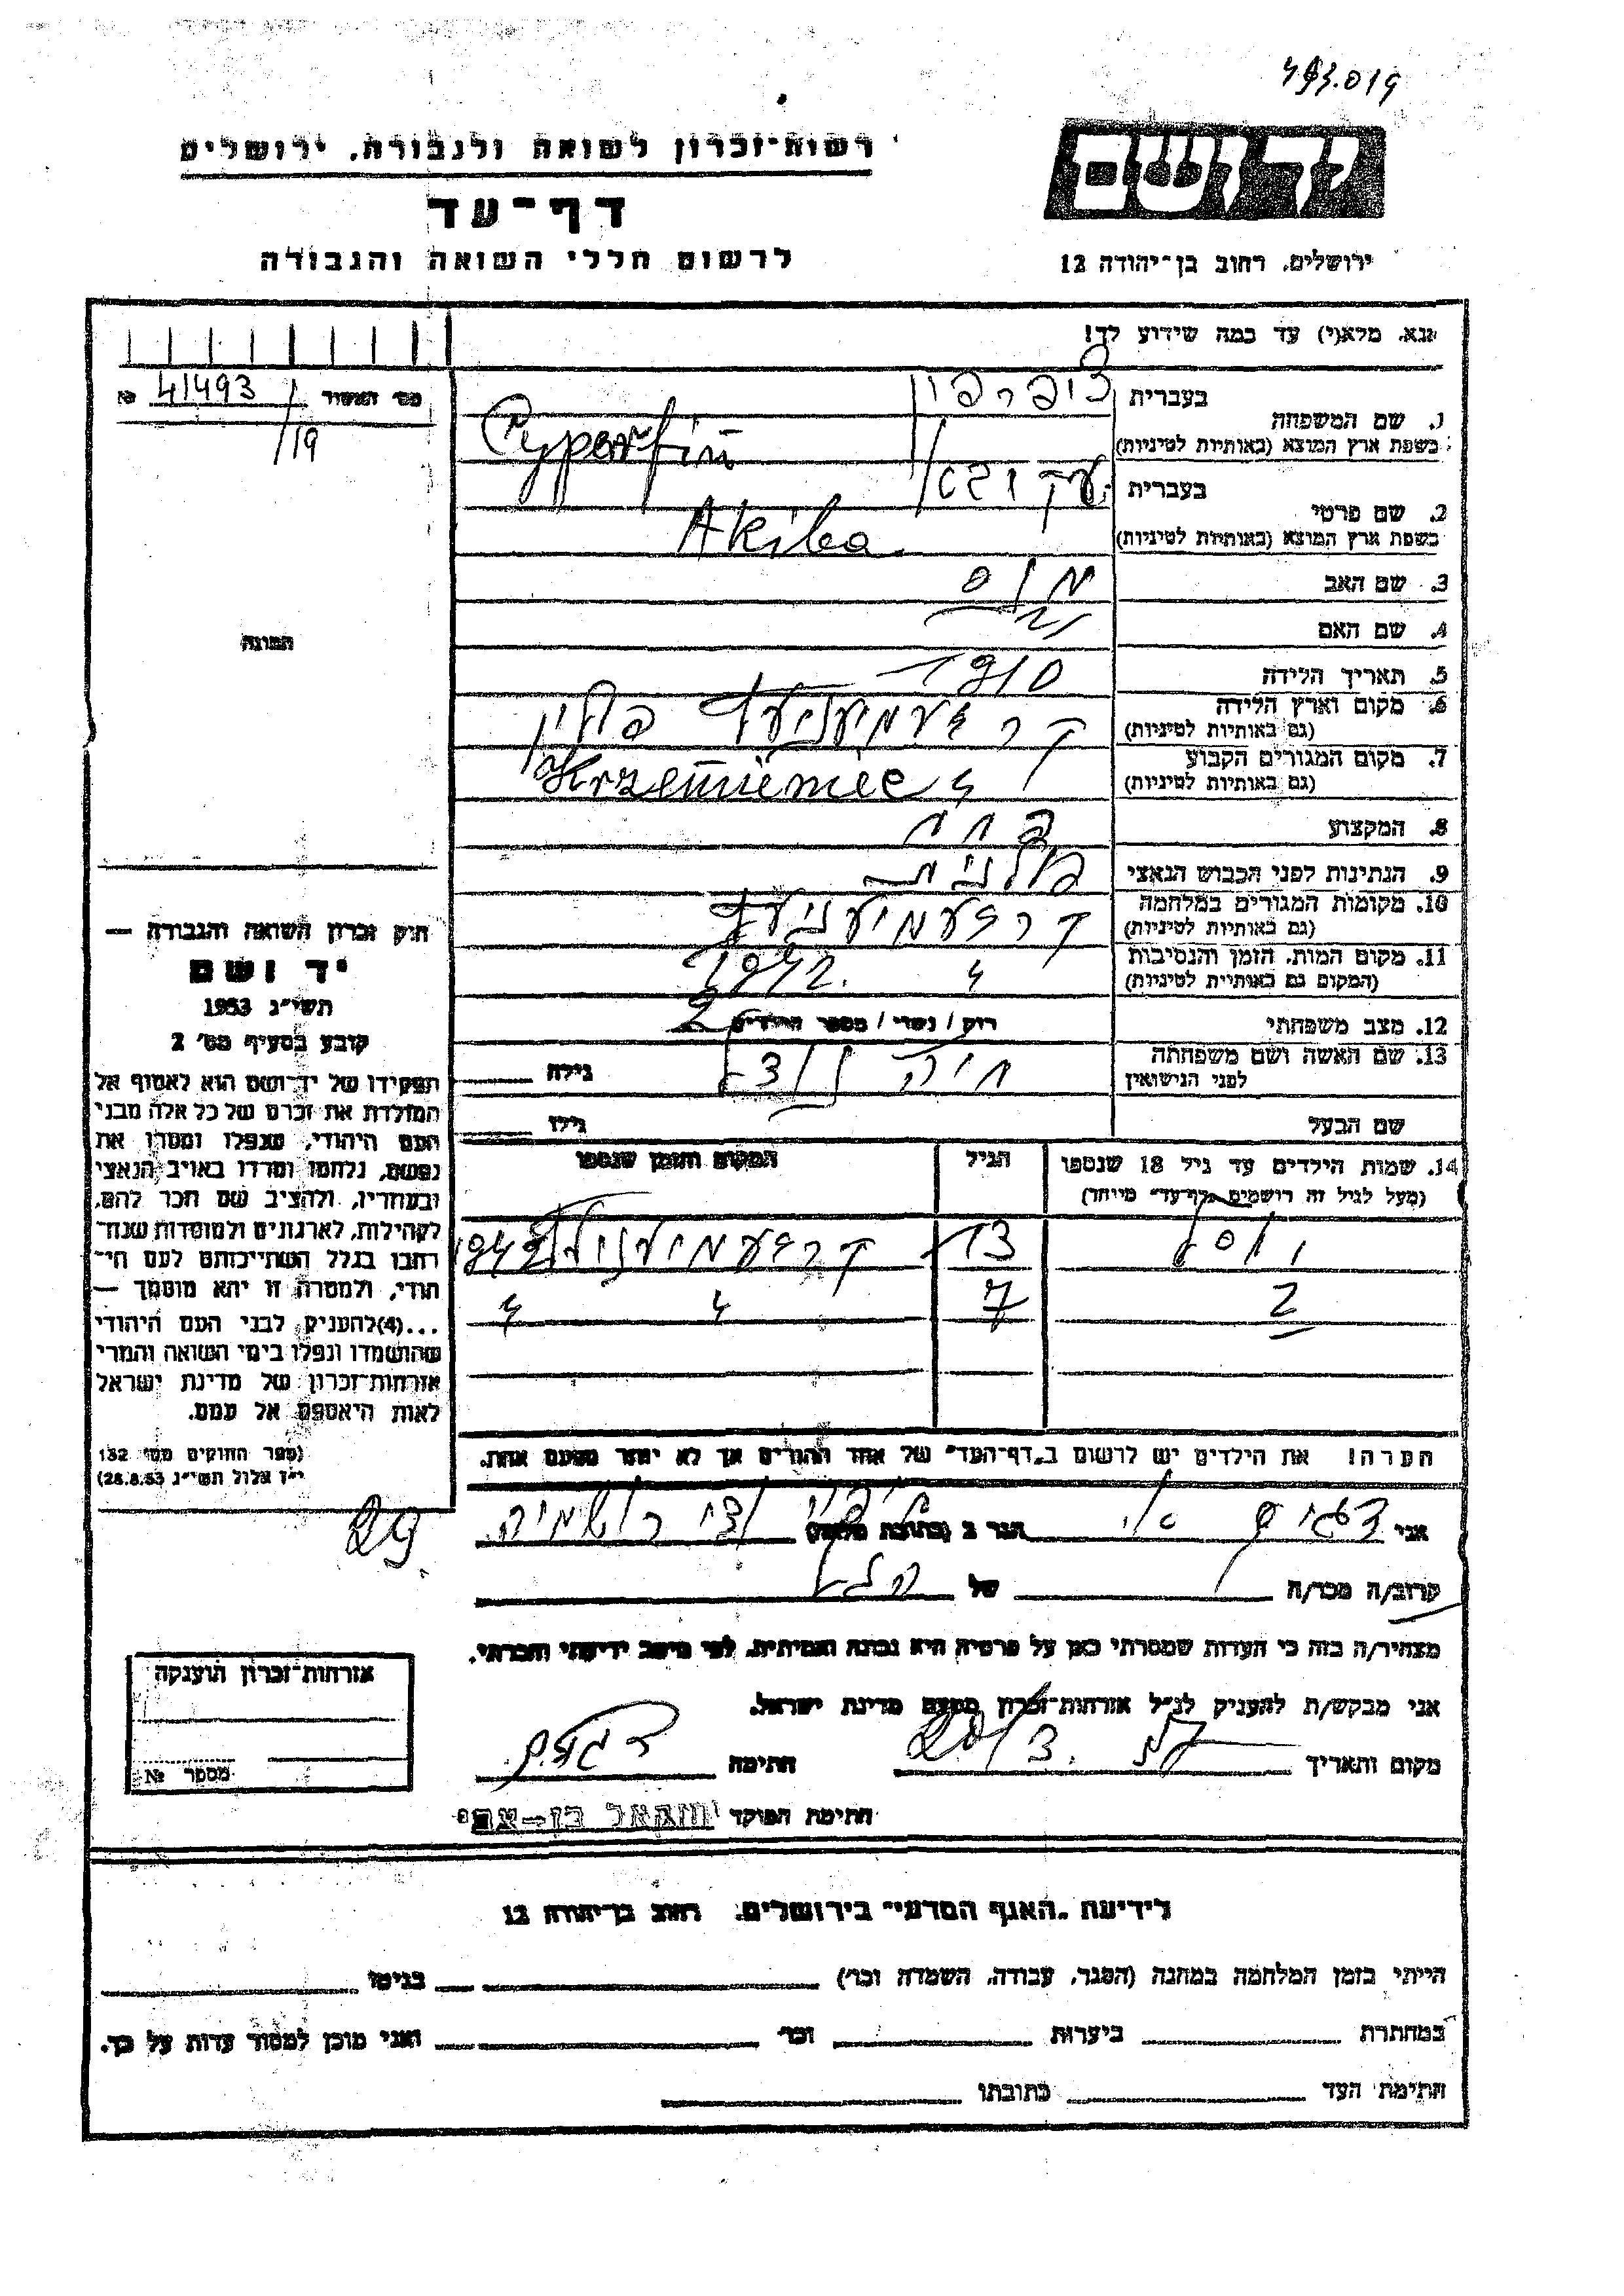 493.019
רשות־זכרון לשואה ולגבורה, ירושלים
יד ושם
דף־עד
לרשום חללי השואה והגבורה
ירושלים, רחוב בן־יהודה 12
נא, מלא(י) עד כמה שידוע לך!
מס' האשור 41493 №
/19
1. שם המשפחה
בעברית ציפרפין
בשפת ארץ המוצא (באותיות לטיניות) Cyperfin
2. שם פרטי
בעברית עקיבא
בשפת ארץ המוצא (באותיות לטיניות) Akiba
3. שם האב
4. שם האם
התמונה
5. תאריך הלידה 1910
6. מקום וארץ הלידה קרעמיעניעץ פולין
(גם באותיות לטיניות)
7. מקום המגורים הקבוע Krzemieniec
(גם באותיות לטיניות)
8. המקצוע פחח
9. הנתינות לפני הכבוש הנאצי פולנית
10. מקומות המגורים במלחמה
(גם באותיות לטיניות)
11. מקום המות, הזמן והנסיבות 1942.
(המקום גם באותיות לטיניות)
12. מצב משפחתי רוק / נשוי / מספר הילדים 2
13. שם האשה ושם משפחתה חיה
לפני הנישואין
גילה
שם הבעל גילו
14. שמות הילדים עד גיל 18 שנספו הגיל המקום והזמן שנספו
(מעל לגיל זה רושמים „דף־עד" מיוחד)
13 1942
2 7
חוק זכרון השואה והגבורה —
יד ושם
תשי"ג 1953
קובע בסעיף מס' 2
תפקידו של יד־ושם הוא לאסוף אל
המולדת את זכרם של כל אלה מבני
העם היהודי, שנפלו ומסרו את
נפשם, נלחמו ומרדו באויב הנאצי
ובעוזריו, ולהציב שם וזכר להם,
לקהילות, לארגונים ולמוסדות שנח־
רבו בגלל השתייכותם לעם הי־
הודי, ולמטרה זו יהא מוסמך —
...(4) להעניק לבני העם היהודי
שהושמדו ונפלו בימי השואה והמרי
אזרחות־זכרון של מדינת ישראל
לאות היאספם אל עמם.
(ספר החוקים מס' 132
י"ז אלול תשי"ג 28.8.53)
הערה! את הילדים יש לרשום ב„דף־העד" של אחד ההורים אך לא יותר מפעם אחת.
29
אני הגר ב (כתובת מלאה)
קרוב/ה מכר/ה של
מצהיר/ה בזה כי העדות שמסרתי כאן על פרטיה היא נכונה ואמיתית, לפי מיטב ידיעתי והכרתי.
אני מבקש/ת להעניק לנ"ל אזרחות־זכרון מטעם מדינת ישראל.
מקום ותאריך חתימה
חתימת הפוקד
אזרחות־זכרון הוענקה
מספר №
לידיעת „האגף המדעי" בירושלים, רחוב בן־יהודה 12
הייתי בזמן המלחמה במחנה (הסגר, עבודה, השמדה וכו') בגיטו
במחתרת ביערות וכו' ואני מוכן למסור עדות על כך.
חתימת העד כתובתו